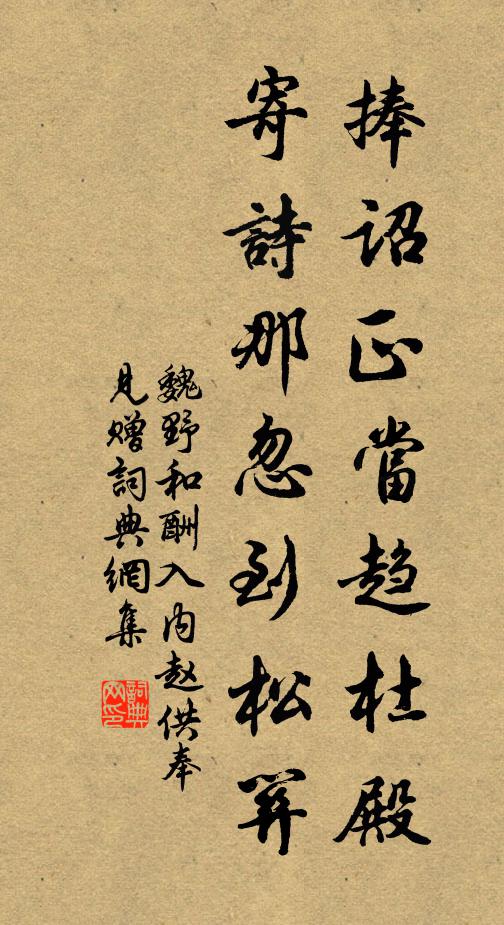 捧詔正當趋杜殿
寄詩那忽到松關
魏野和酬入内赵供奉
見赠詞典網集
詞典
网印